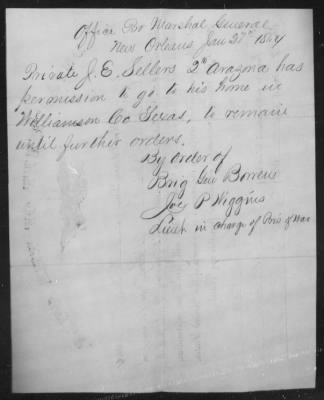 Office Pro Marshal General
New Orleans Jan 27th 1864
Private J. E. Sellers 2d Arazona has
permission to go to his home in
Williamson Co Texas, to remain
until further orders.
By Order of
Brig Gen Bowen
Joe P Wiggins
Lieut in charge of Pris of War